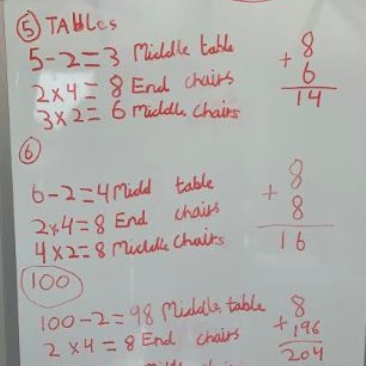 5 TABLES
5-2=3 Middle table
2x4=8 End chairs
3x2=6 Middle chairs
8
+ 6
14
6
6-2=4 Midd table
2x4=8 End chairs
4x2=8 Middle chairs
8
+ 8
16
100
100-2=98 Middle table
2x4=8 End chairs
8
+ 196
204